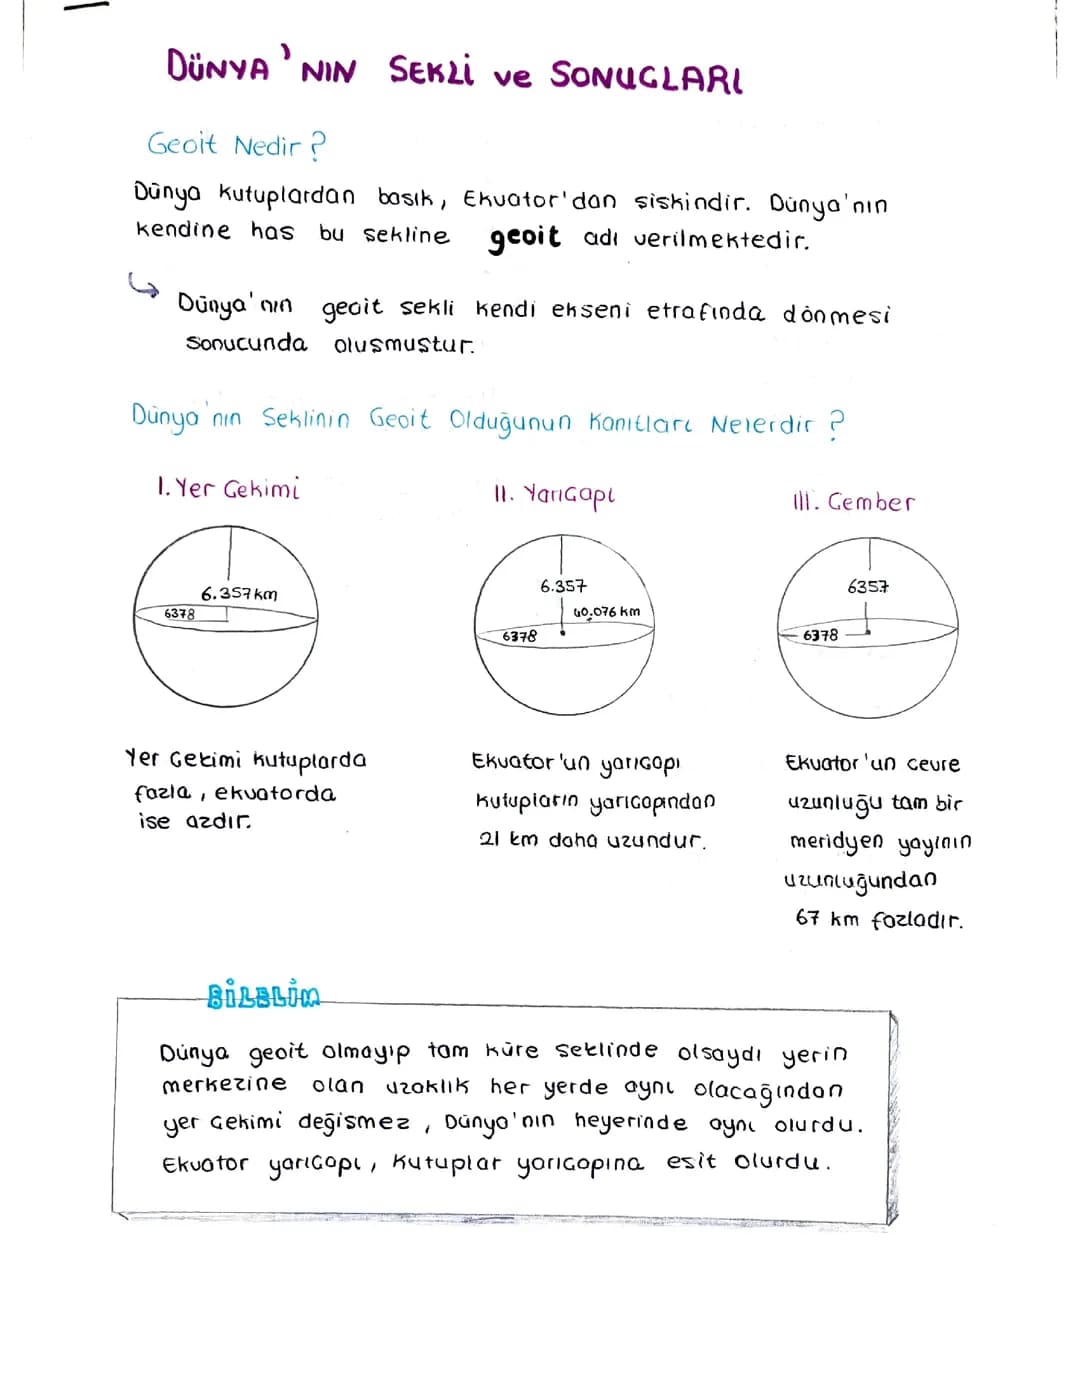 DÜNYA'NIN SEKLİ ve SONUCLARI
Geoit Nedir?
Dünya kutuplardan basık, Ekvator'dan siskindir. Dünya'nın
kendine has bu sekline geoit adı verilmektedir.
↳ Dünya'nın geoit sekli kendi ekseni etrafında dönmesi
sonucunda olusmustur.
Dünya'nın Seklinin Geoit Olduğunun Kanıtları Nelerdir?
I. Yer Cekimi
6.357 km
6378
Yer Cekimi kutuplarda
fazla, ekvatorda
ise azdır.
II. Yarıcapı
6.357
40.076 km
6378
Ekvator'un yarıcapı
kutupların yarıcapından
21 km daha uzundur.
III. Cember
6357
6378
Ekvator'un cevre
uzunluğu tam bir
meridyen yayının
uzunluğundan
67 km fazladır.
BİLELİM
Dünya geoit olmayıp tam küre seklinde olsaydı yerin
merkezine olan uzaklık her yerde aynı olacağından
yer cekimi değismez, Dünya'nın heyerinde aynı olurdu.
Ekvator yarıcapı, Kutuplar yarıcapına esit olurdu.